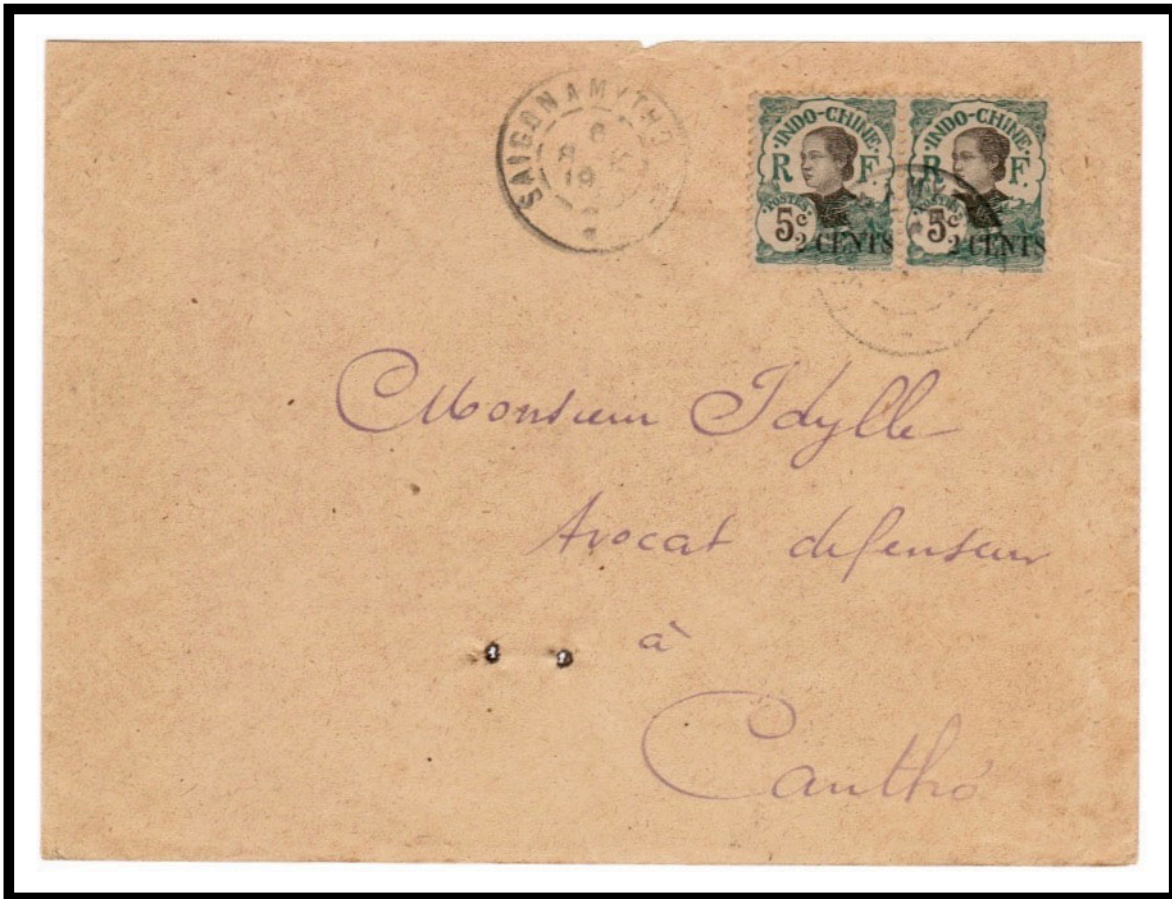 SAIGON A MYTHO
8
19
INDO-CHINE
R F.
POSTES
5c
2 CENTS
INDO-CHINE
R F.
POSTES
5c
2 CENTS
Monsieur Idylle
Avocat defenseur
à
Canthó